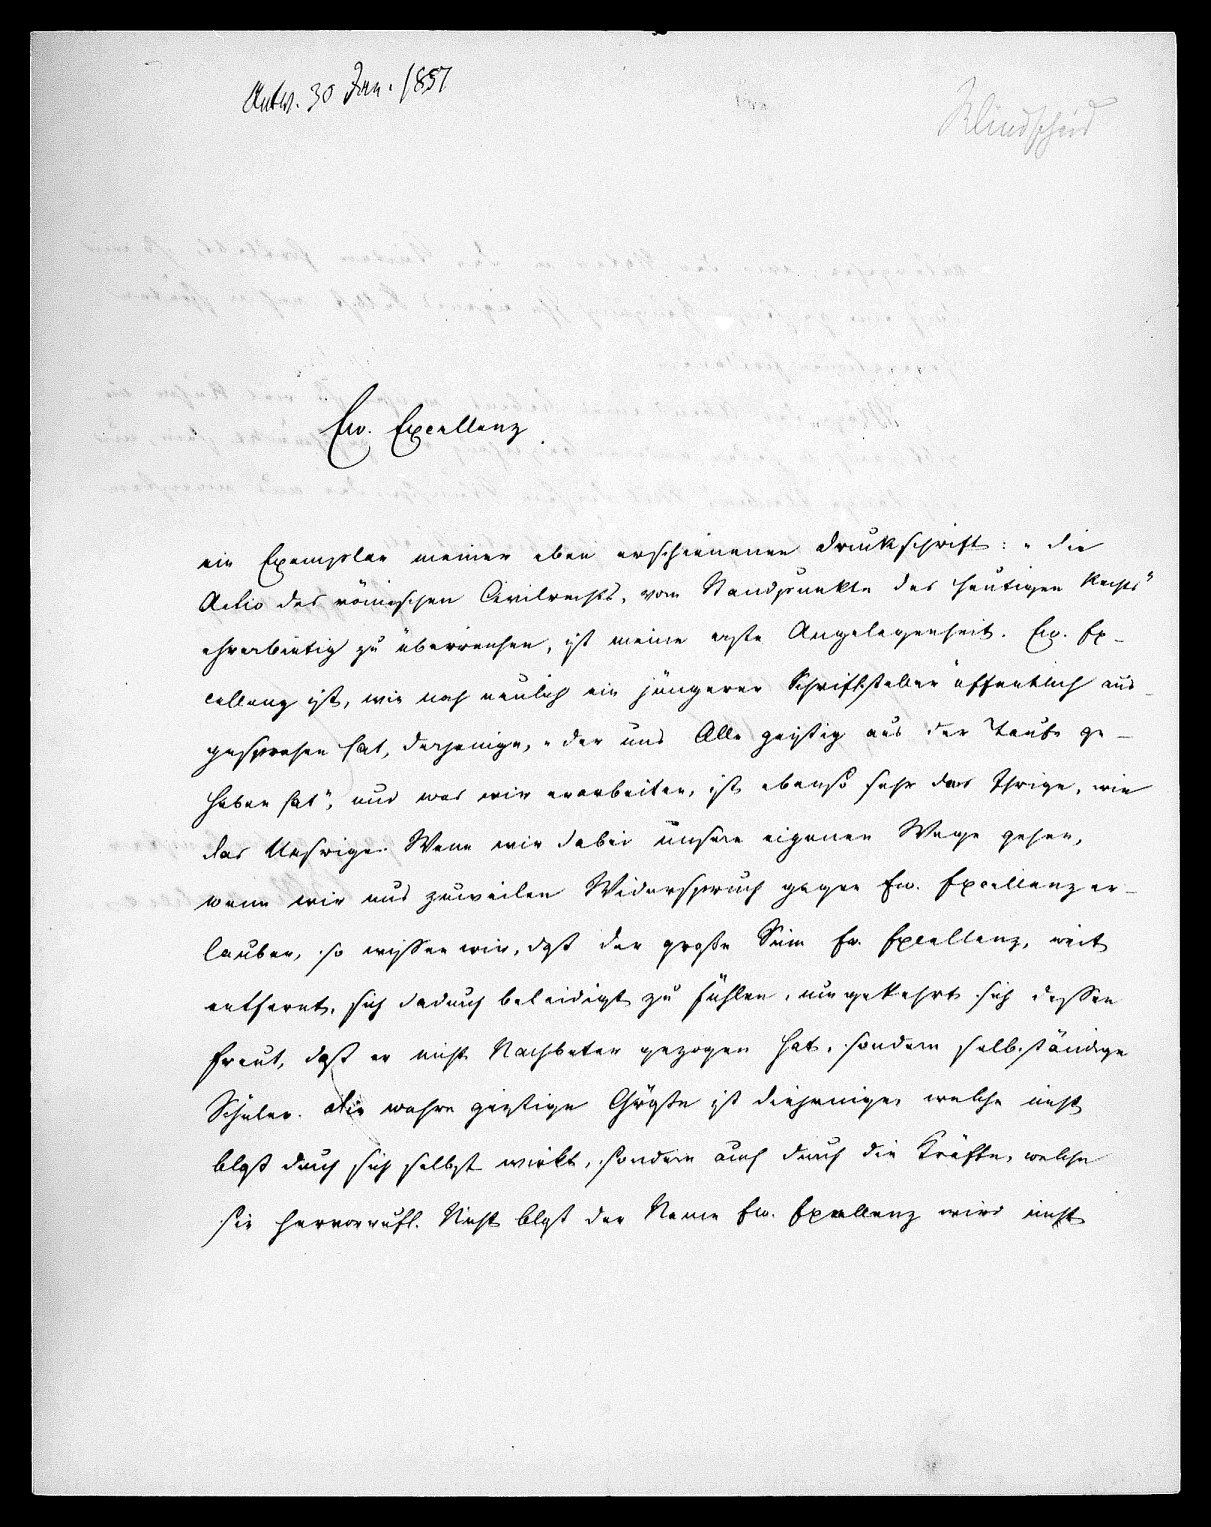 Antw. 30 Jan. 1857
Windscheid
Ew. Excellenz
ein Exemplar meiner eben erschienenen Druckschrift: „die
Actio des römischen Civilrechts, vom Standpunkte des heutigen Rechts“
ehrerbietig zu überreichen, ist meine erste Angelegenheit. Ew. Ex-
cellenz ist, wie noch neulich ein jüngerer Schriftsteller öffentlich aus-
gesprochen hat, derjenige, „der uns Alle geistig aus der Taufe ge-
hoben hat“, und was wir erarbeiten, ist ebenso sehr das Ihrige, wie
das Unsrige. Wenn wir dabei unsere eigenen Wege gehen,
wenn wir uns zuweilen Widerspruch gegen Ew. Excellenz er-
lauben, so wissen wir, daß der große Sinn Ew. Excellenz, weit
entfernt, sich dadurch beleidigt zu fühlen, umgekehrt sich dessen
freut, daß er nicht Nachbeter gezogen hat, sondern selbständige
Schüler. Die wahre geistige Größe ist diejenige, welche nicht
bloß durch sich selbst wirkt, sondern auch durch die Kräfte, welche
sie hervorruft. Nicht bloß der Name Ew. Excellenz wird nicht